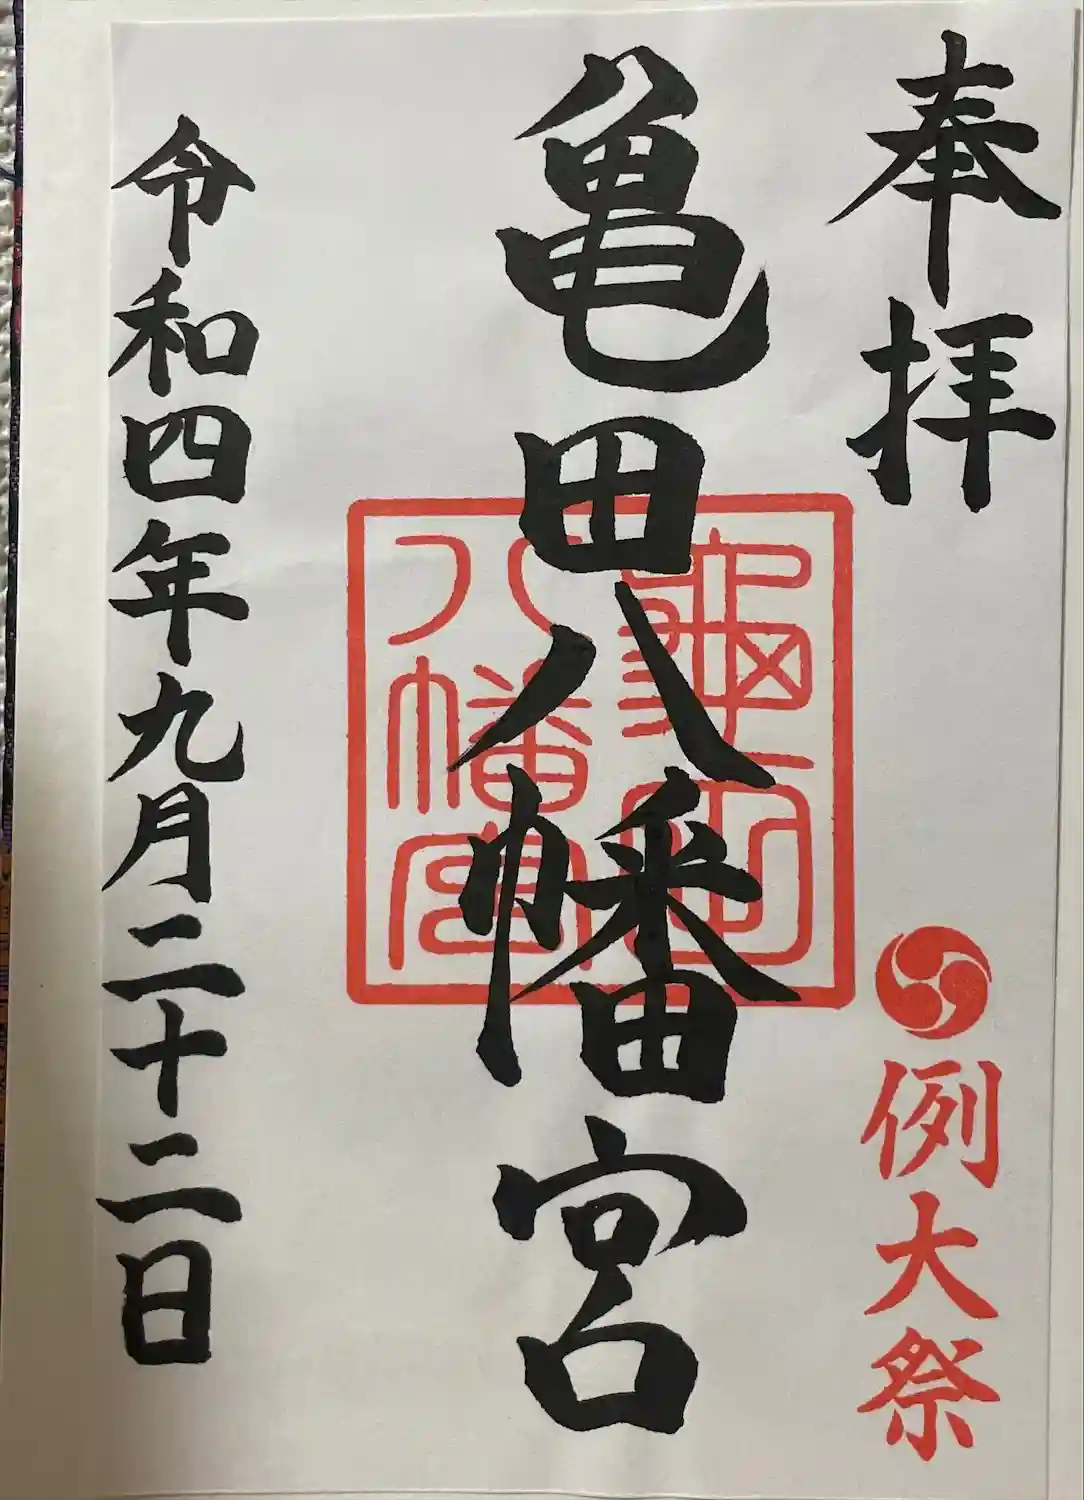 奉拝
例大祭
亀田八幡宮
龜田
八幡宮
令和四年九月二十二日